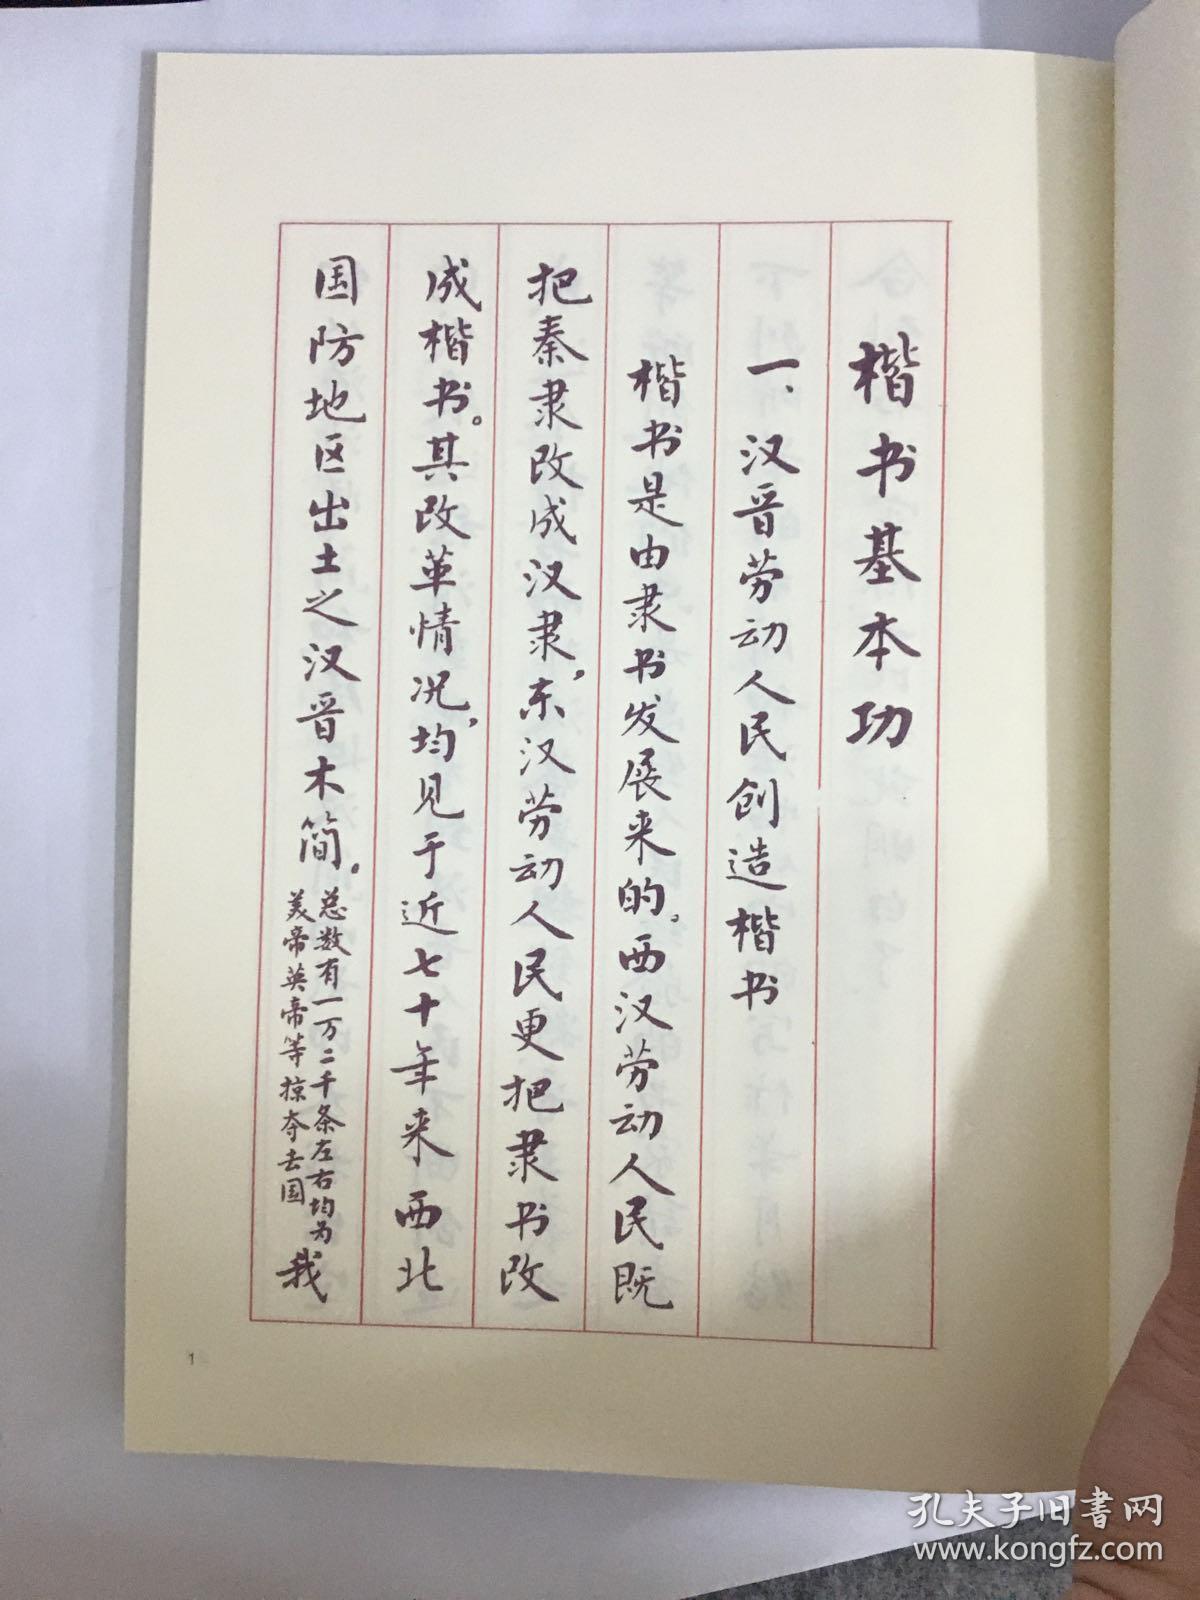 楷书基本功
一、汉晋劳动人民创造楷书
楷书是由隶书发展来的。西汉劳动人民既
把秦隶改成汉隶，东汉劳动人民更把隶书改
成楷书。其改革情况，均见于近七十年来西北
国防地区出土之汉晋木简。
总数有一万二千条左右均为
美帝英帝等掠夺去国
我
1
孔夫子旧书网
www.kongfz.com